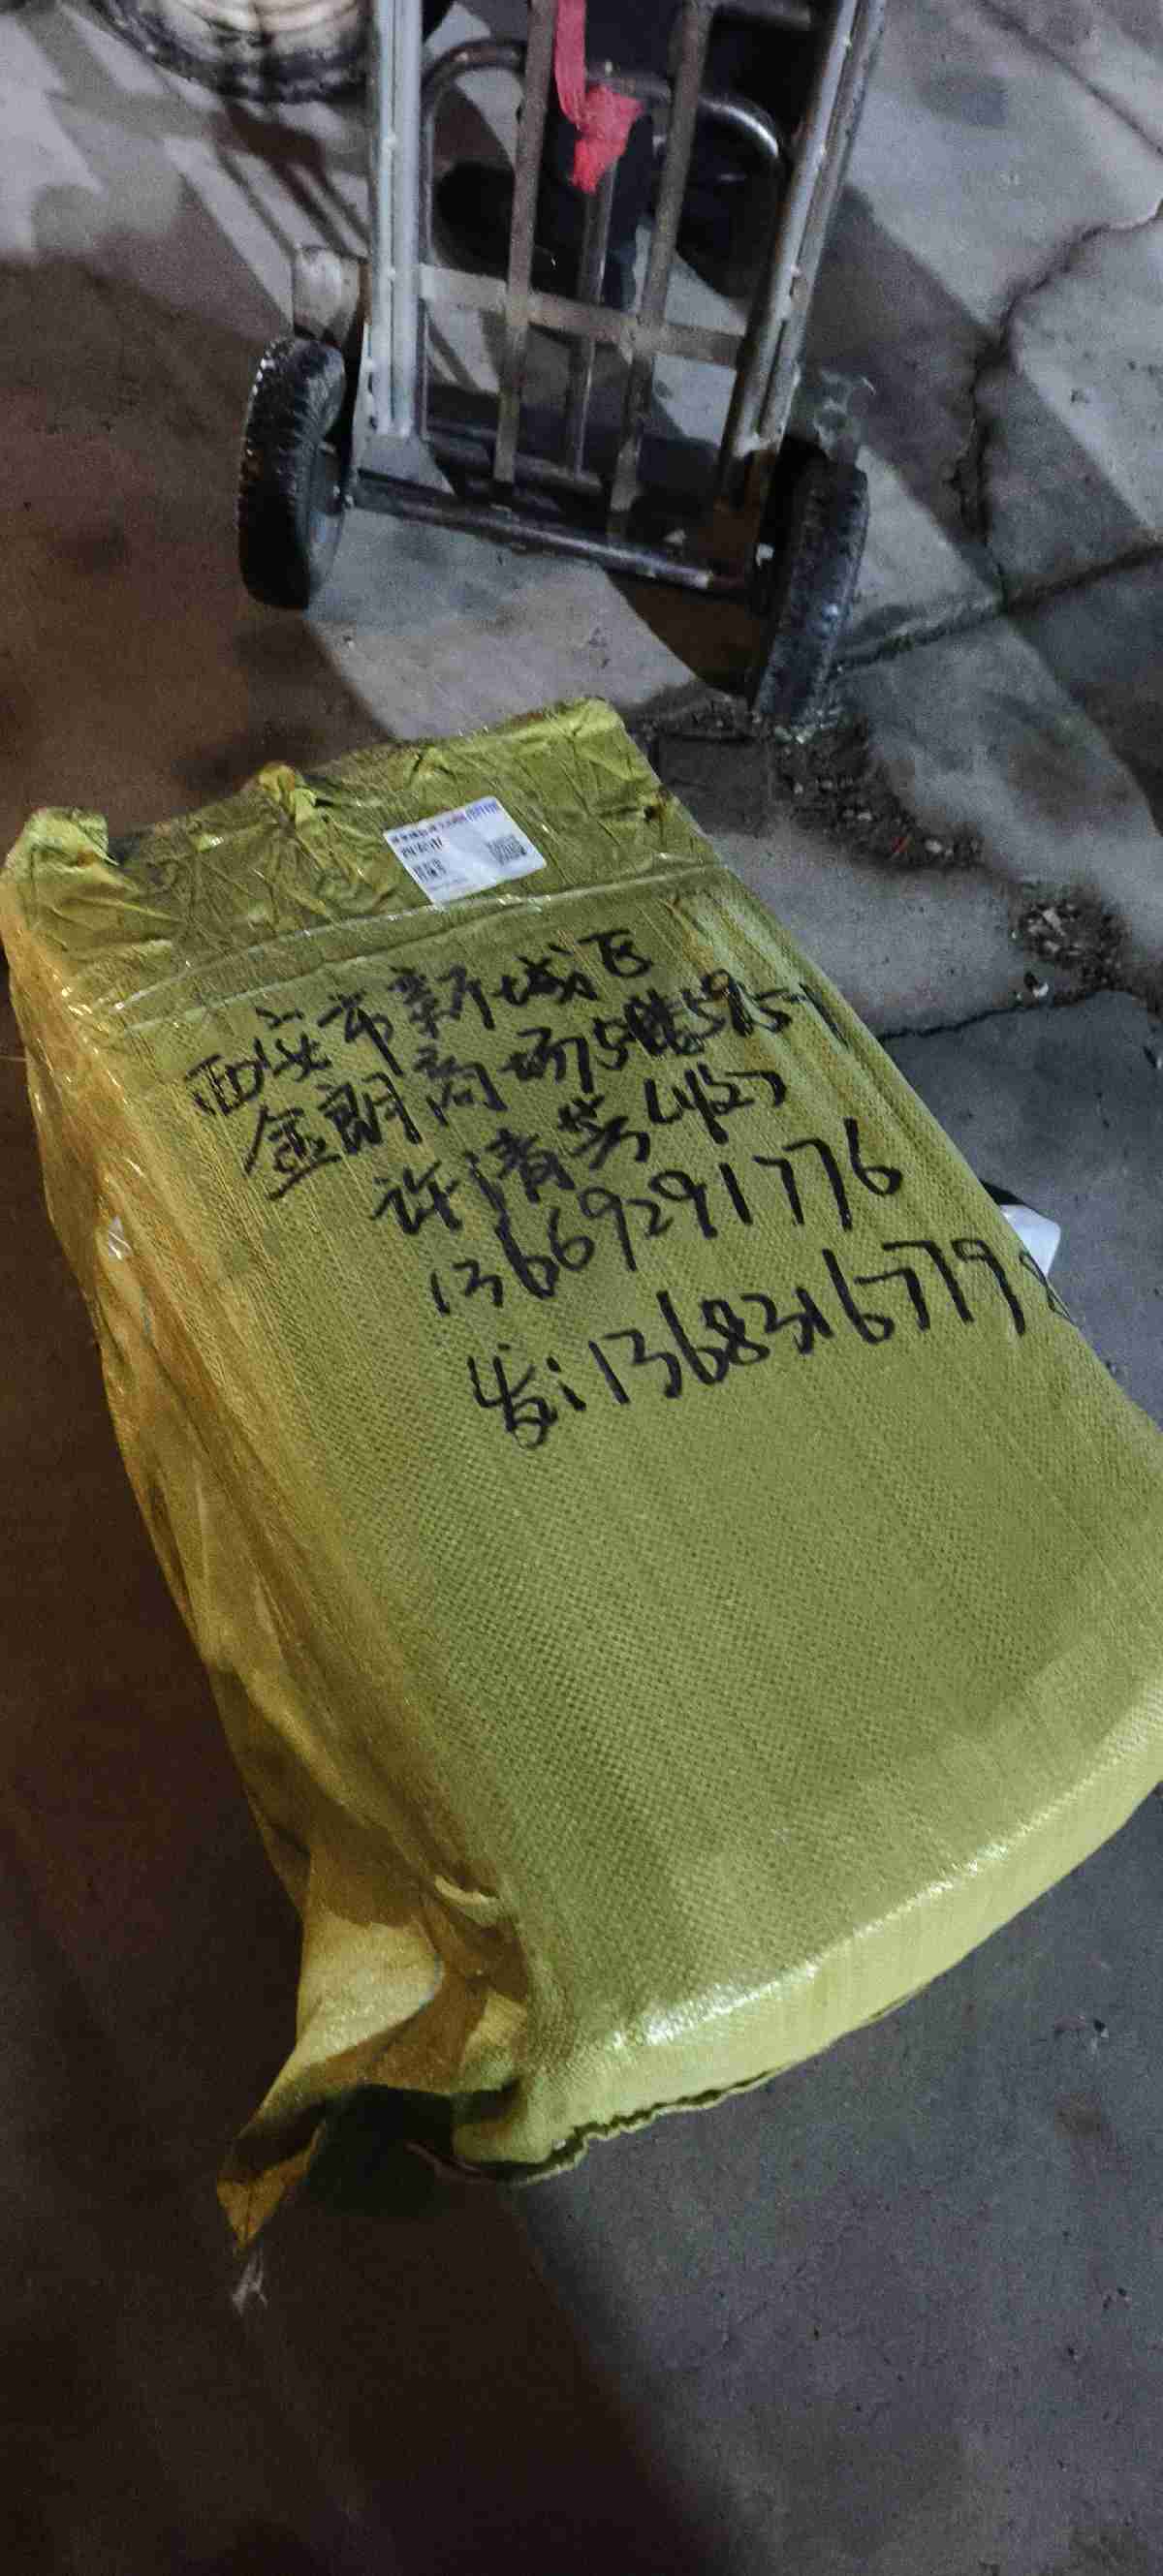 西安市新城区
金朗商场5楼595-1
许清芳
13669291776
发:1368316779